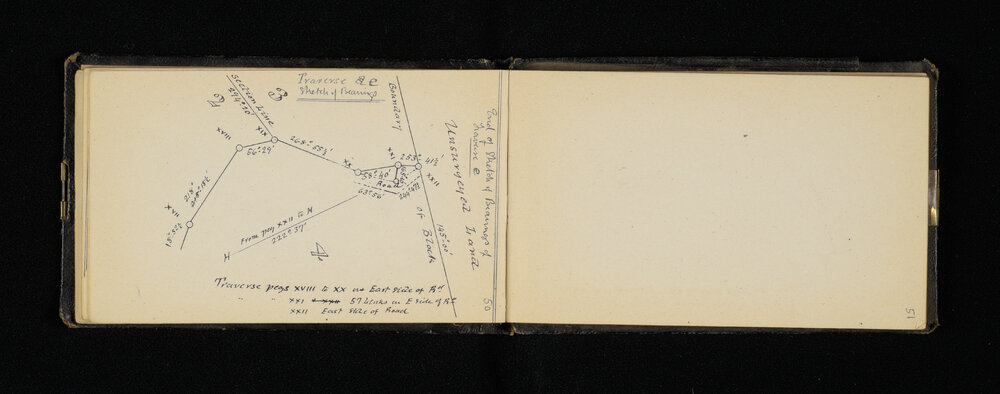 Traverse e
Sketch of Bearings
Section Line
294°50'
69
68
XVIII
XIX
56°29'
268°55½'
XVII
218°
18°52½'
XX
59°40'
Road
63°56'
XXI
253°
41½'
XXII
Boundary
of Block
145°00'
Unsurveyed Land
End of Sketch of Bearings of
Traverse e
From peg XXII to H
222°37'
H
Traverse pegs XVIII to XX on East side of Rd
" " XXI 57 links on E side of Rd
XXII East Side of Road
50
51